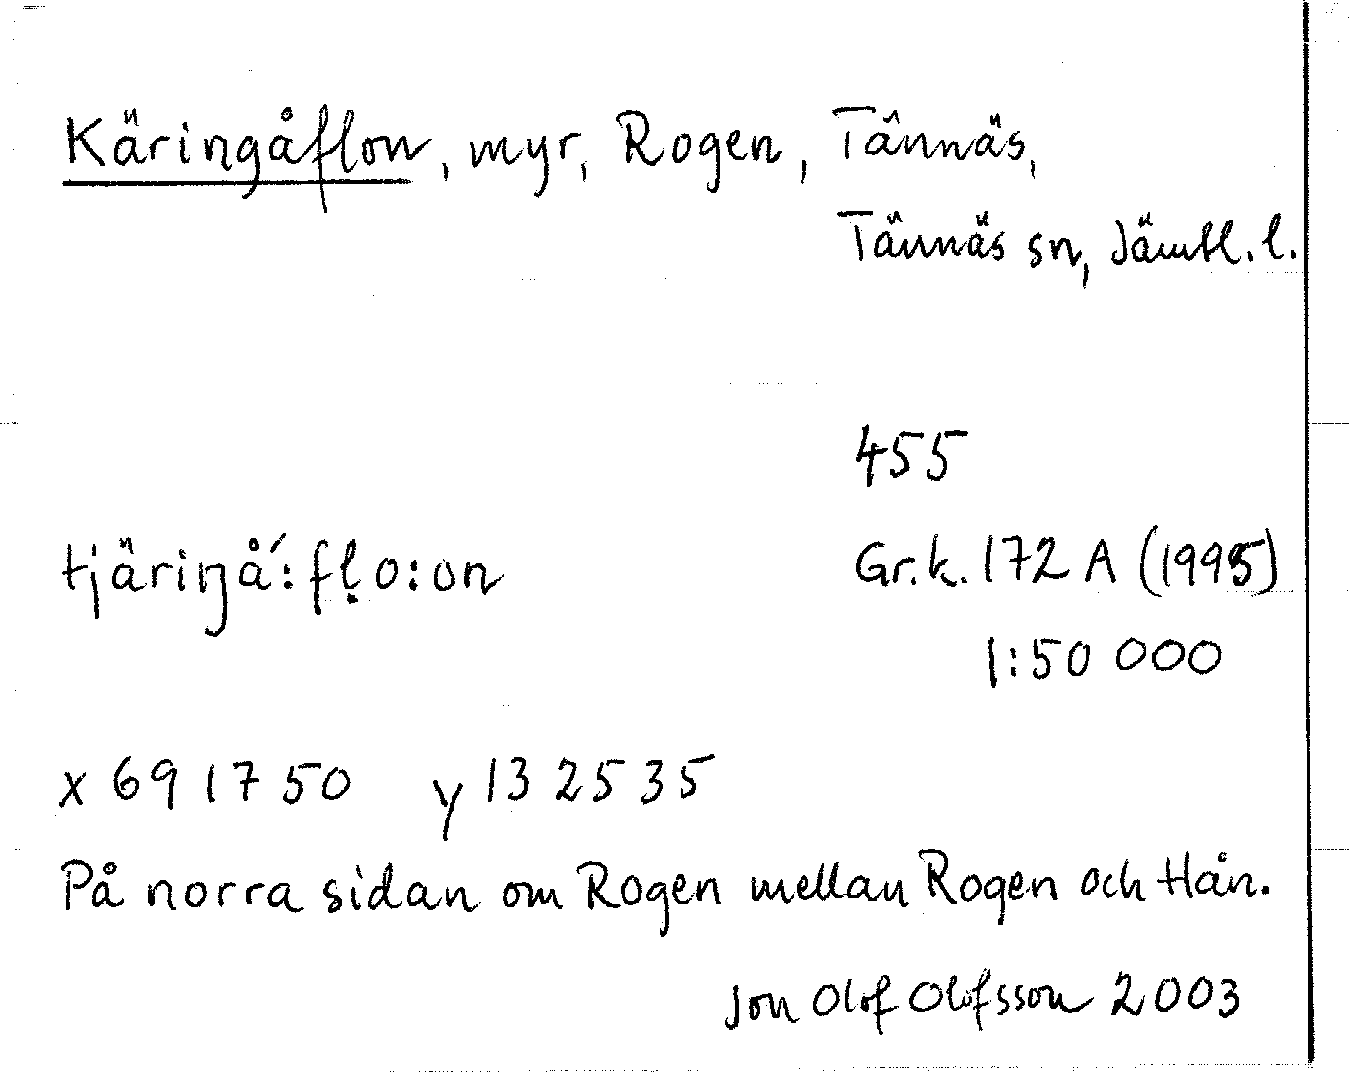 Käringåflon, myr, Rogen, Tännäs,
Tännäs sn, Jämtl. l.
455
tjäriŋå´: fḷo:on
Gr.k. 172 A (1995)
1:50 000
x 691750 y 132535
På norra sidan om Rogen mellan Rogen och Hån.
Jon Olof Olofsson 2003